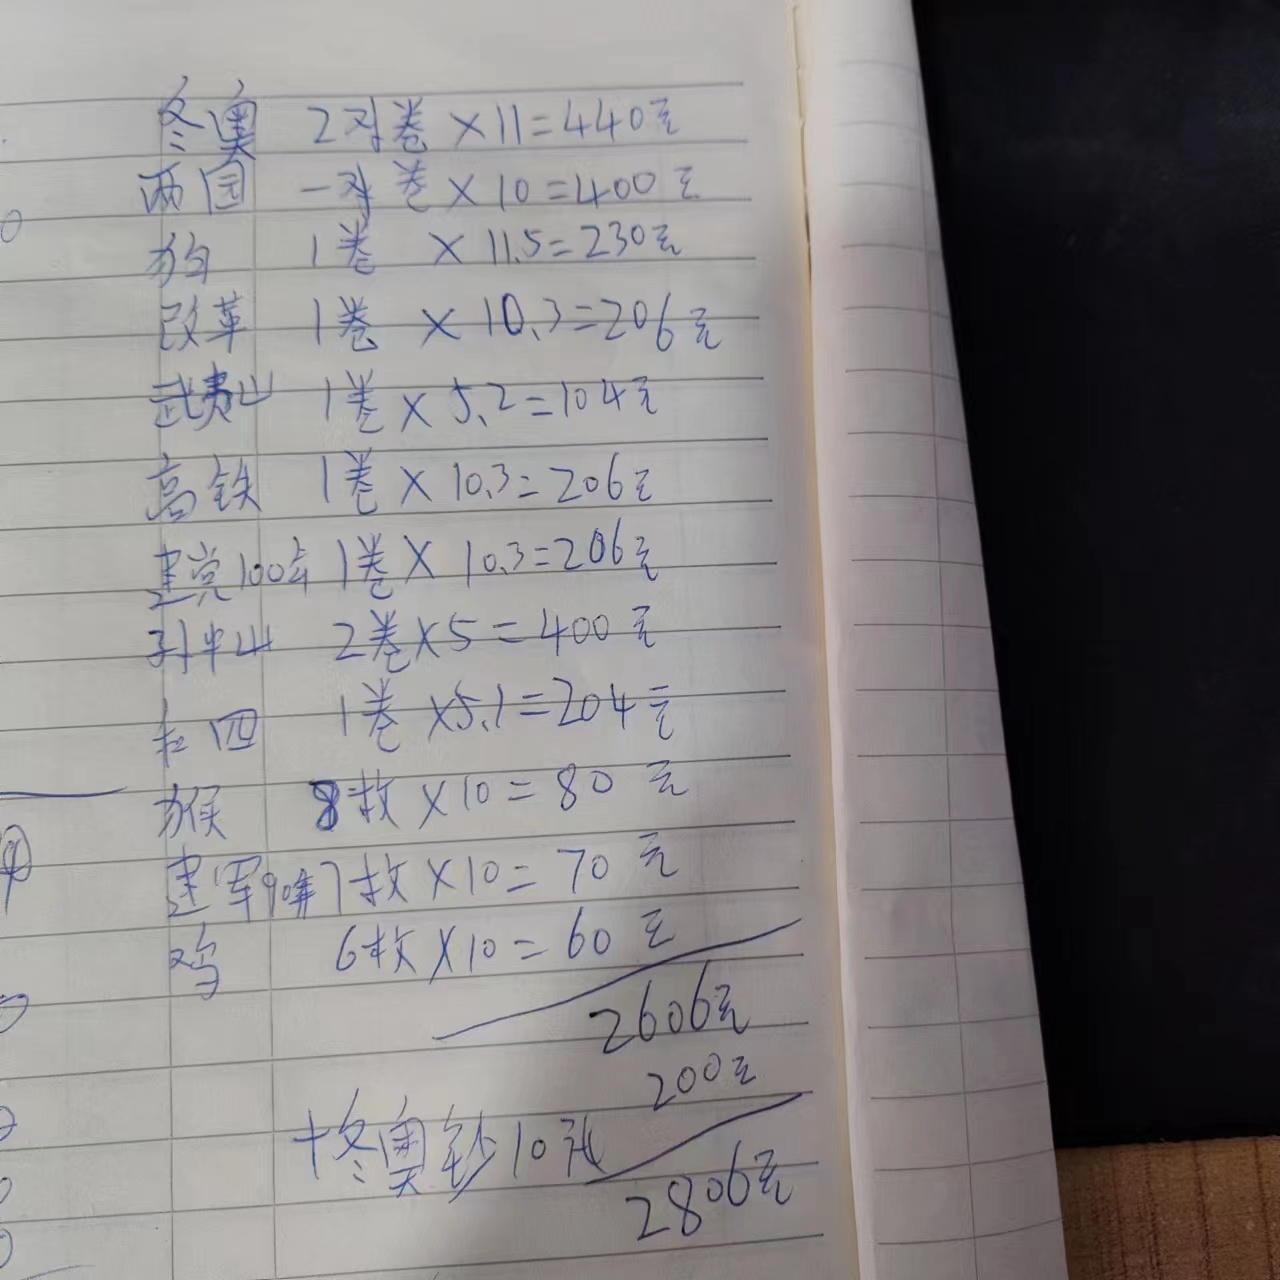 冬奥 2对卷×11=440元
两园 一对卷×10=400元
狗 1卷 ×11.5=230元
改革 1卷 ×10.3=206元
武夷山 1卷×5.2=104元
高铁 1卷×10.3=206元
建党100年 1卷×10.3=206元
孙中山 2卷×5=400元
和四 1卷×5.1=204元
猴 8枚×10=80元
建军90年7枚×10=70元
鸡 6枚×10=60元
2606元
200元
+冬奥钞10张
2806元